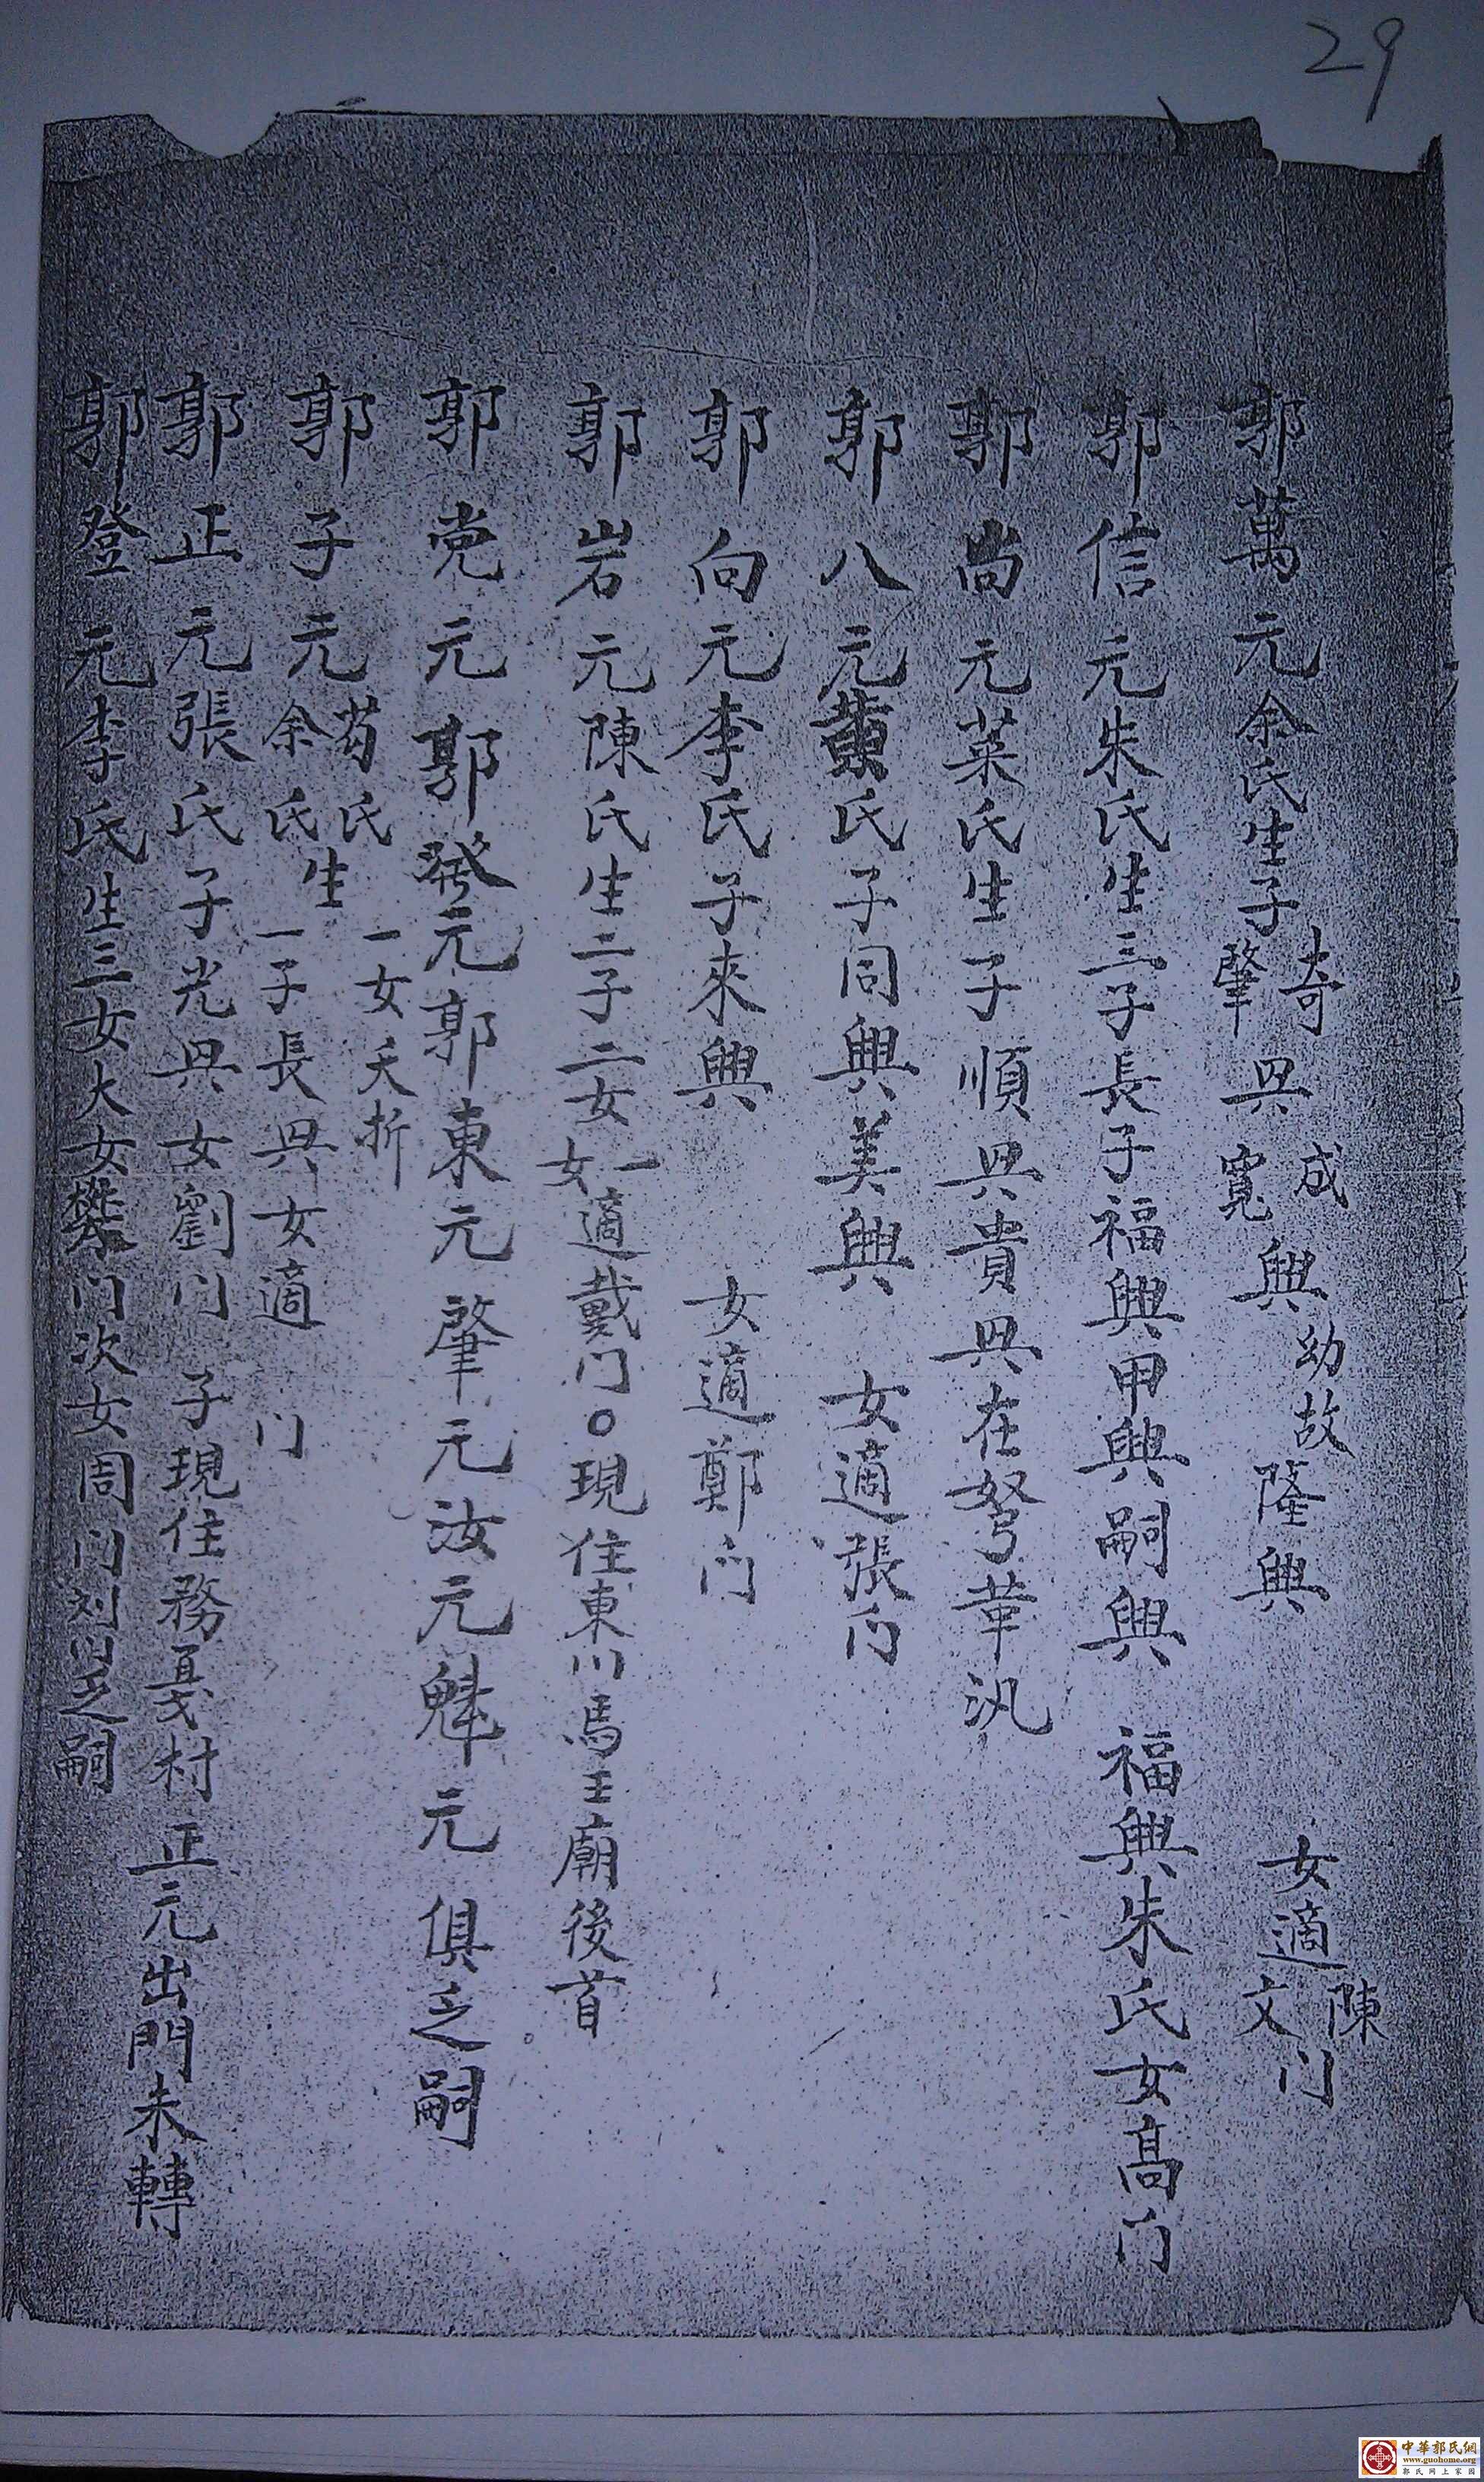 29
郭萬元余氏生子奇肇興成寬興幼故隆興 女適陳文门
郭信元朱氏生三子長子福興甲興嗣興 福興朱氏女高门
郭尚元菜氏生子順興貴興在弩華汛
郭八元黄氏子同興美興 女適張门
郭向元李氏子來興 女適鄭门
郭岩元陳氏生二子二女一女適戴门○現住東川馬王廟後首
郭党元郭發元郭東元肇元汝元魁元俱乏嗣
郭子元苟氏余氏生一女夭折一子長興女適 门
郭正元張氏子光興女劉门 子現住務村正元出門未轉
郭登元李氏生三女大女樊门次女周门刘门乏嗣
中華郭氏網
www.guohome.org
郭氏网上家园